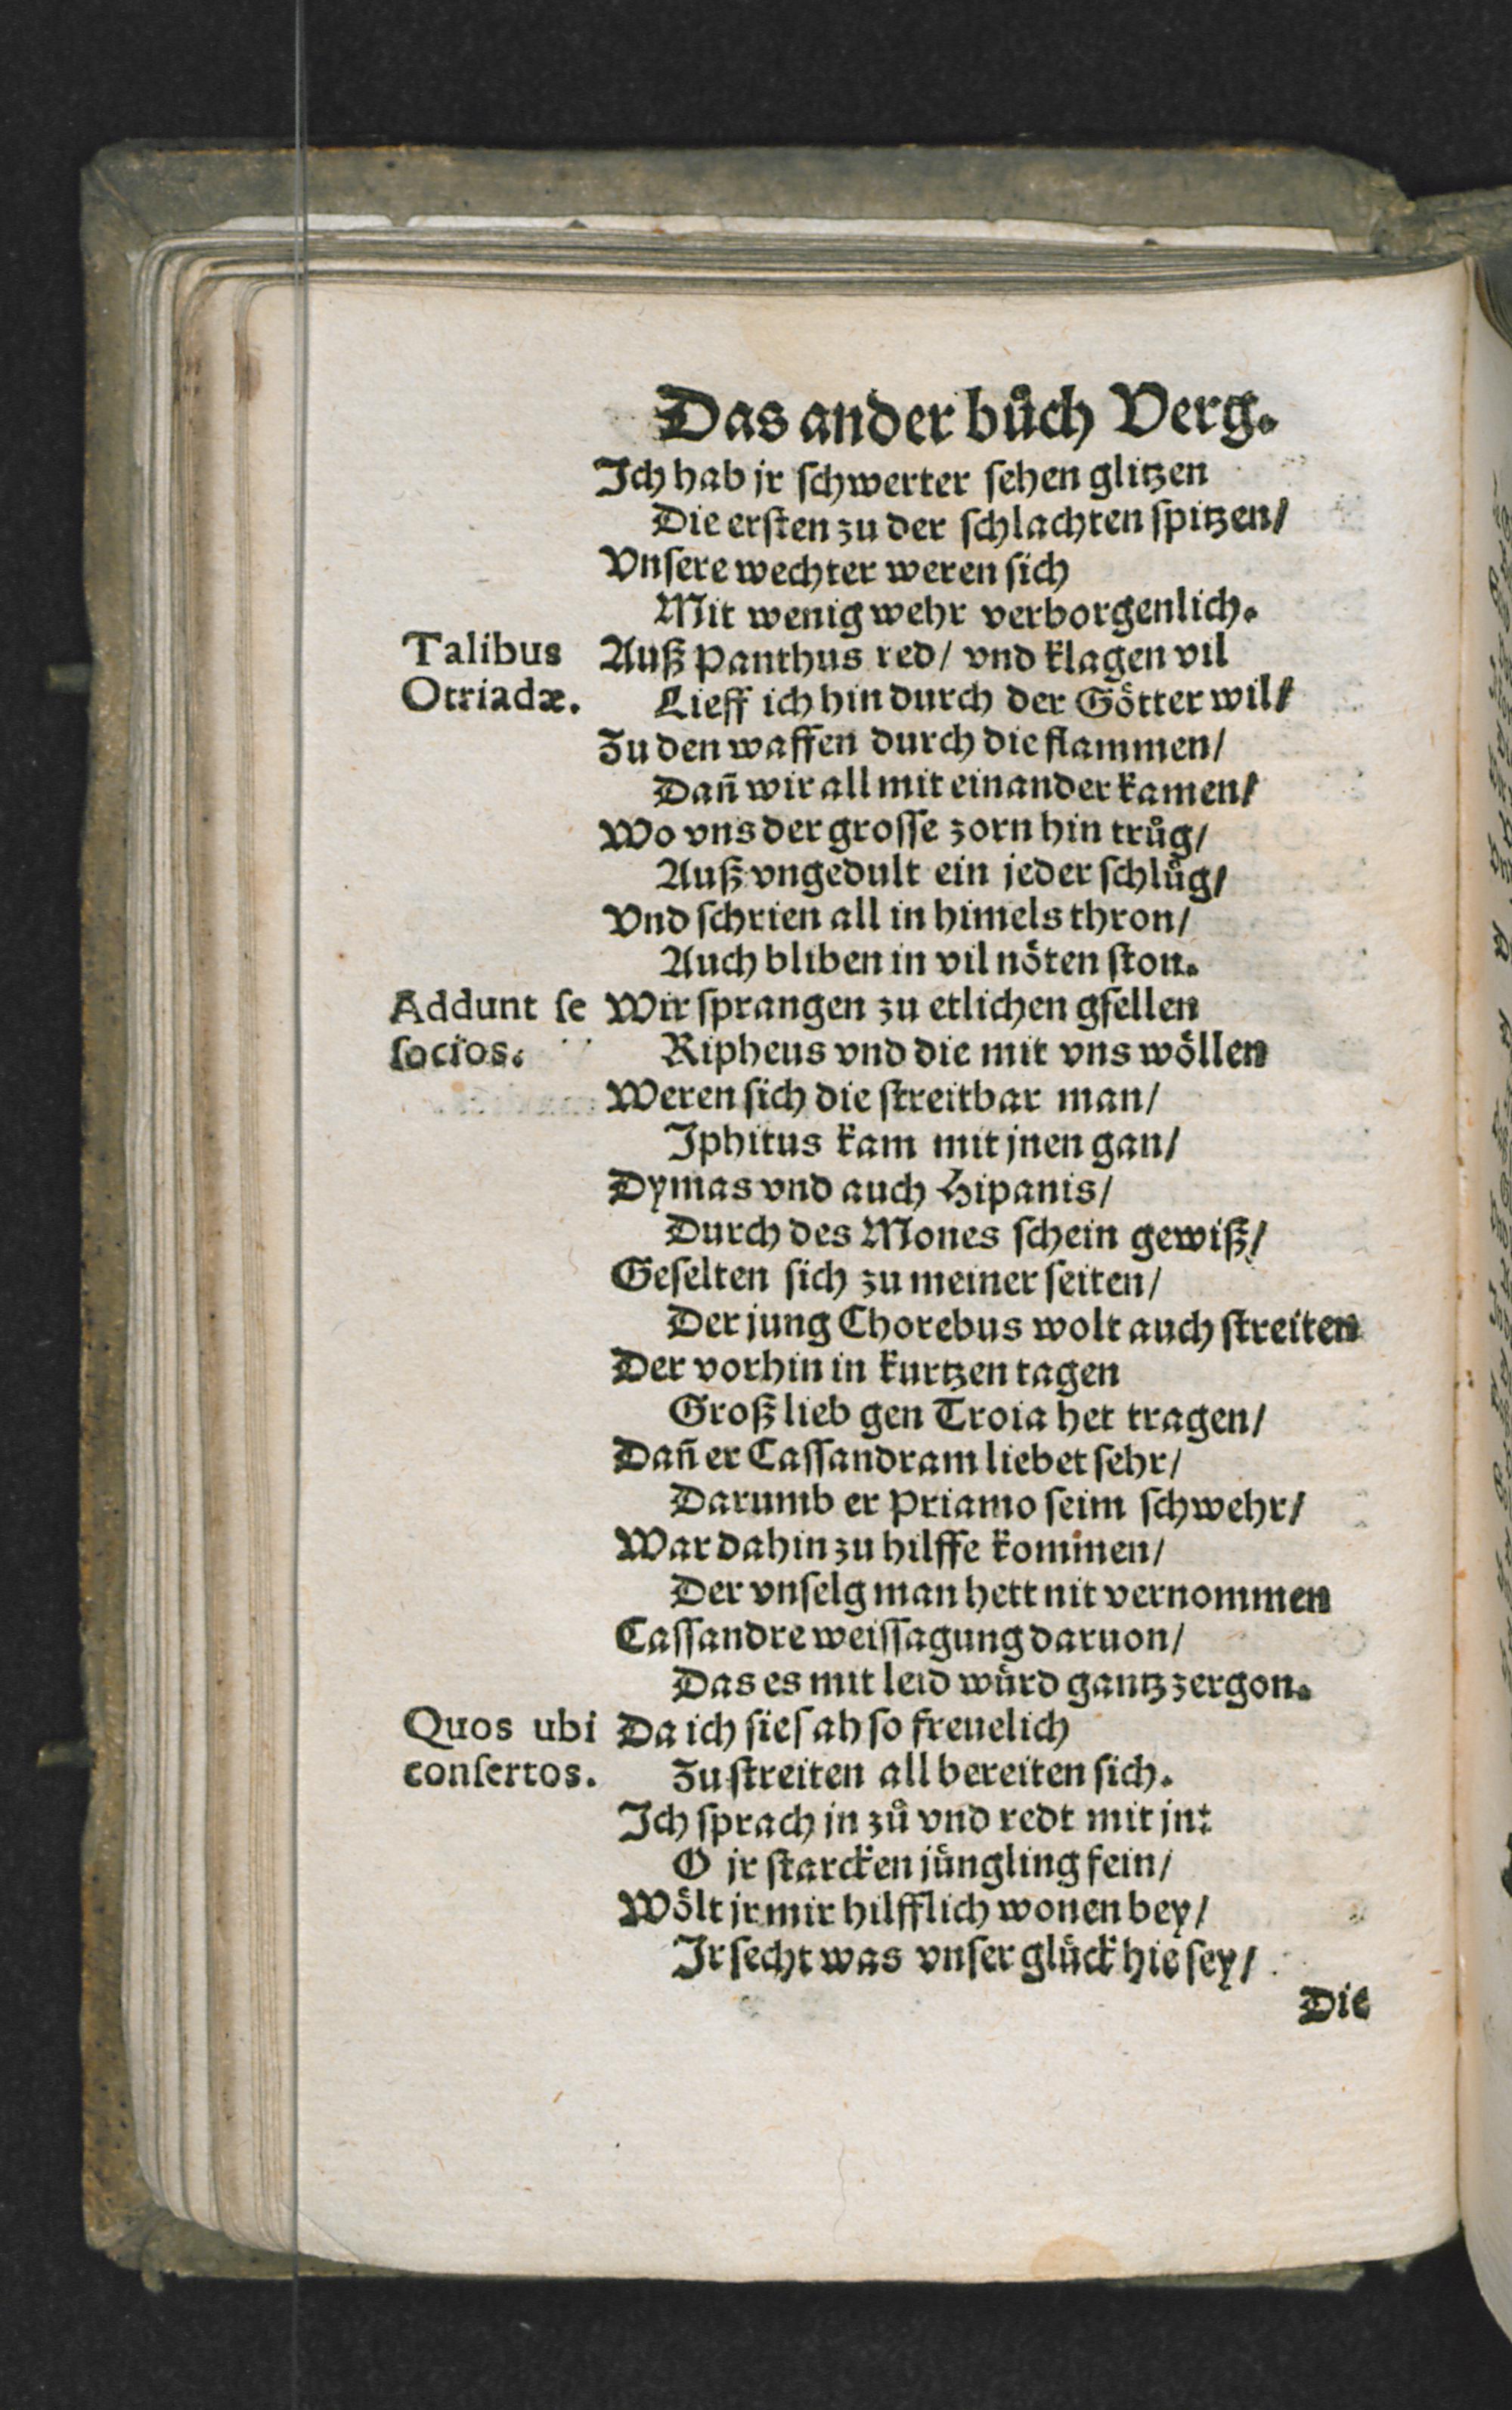 Das ander bůch Verg.
Ich hab jr schwerter sehen glitzen
Die ersten zu der schlachten spitzen/
Vnsere wechter weren sich
Mit wenig wehr verborgenlich.
Talibus Auß Panthus red/ vnd klagen vil
Otriadæ. Lieff ich hin durch der Götter wil/
Zu den waffen durch die flammen/
Dañ wir all mit einander kamen/
Wo vns der grosse zorn hin trůg/
Auß vngedult ein jeder schlůg/
Vnd schrien all in himels thron/
Auch bliben in vil nöten ston.
Addunt se Wir sprangen zu etlichen gsellen
socios. Ripheus vnd die mit vns wöllen
Weren sich die streitbar man/
Iphitus kam mit jnen gan/
Dymas vnd auch Hipanis/
Durch des Mones schein gewiß/
Geselten sich zu meiner seiten/
Der jung Chorebus wolt auch streiten
Der vorhin in kurtzen tagen
Groß lieb gen Troia het tragen/
Dañ er Cassandram liebet sehr/
Darumb er Priamo seim schwehr/
War dahin zu hilffe kommen/
Der vnselg man hett nit vernommen
Cassandre weissagung daruon/
Das es mit leid würd gantz zergon.
Quos ubi Da ich sie sah so freuelich
consertos. Zu streiten all bereiten sich.
Ich sprach in zů vnd redt mit jn:
O jr starcken jüngling fein/
Wölt jr mir hilfflich wonen bey/
Ir secht was vnser glück hie sey/
Die